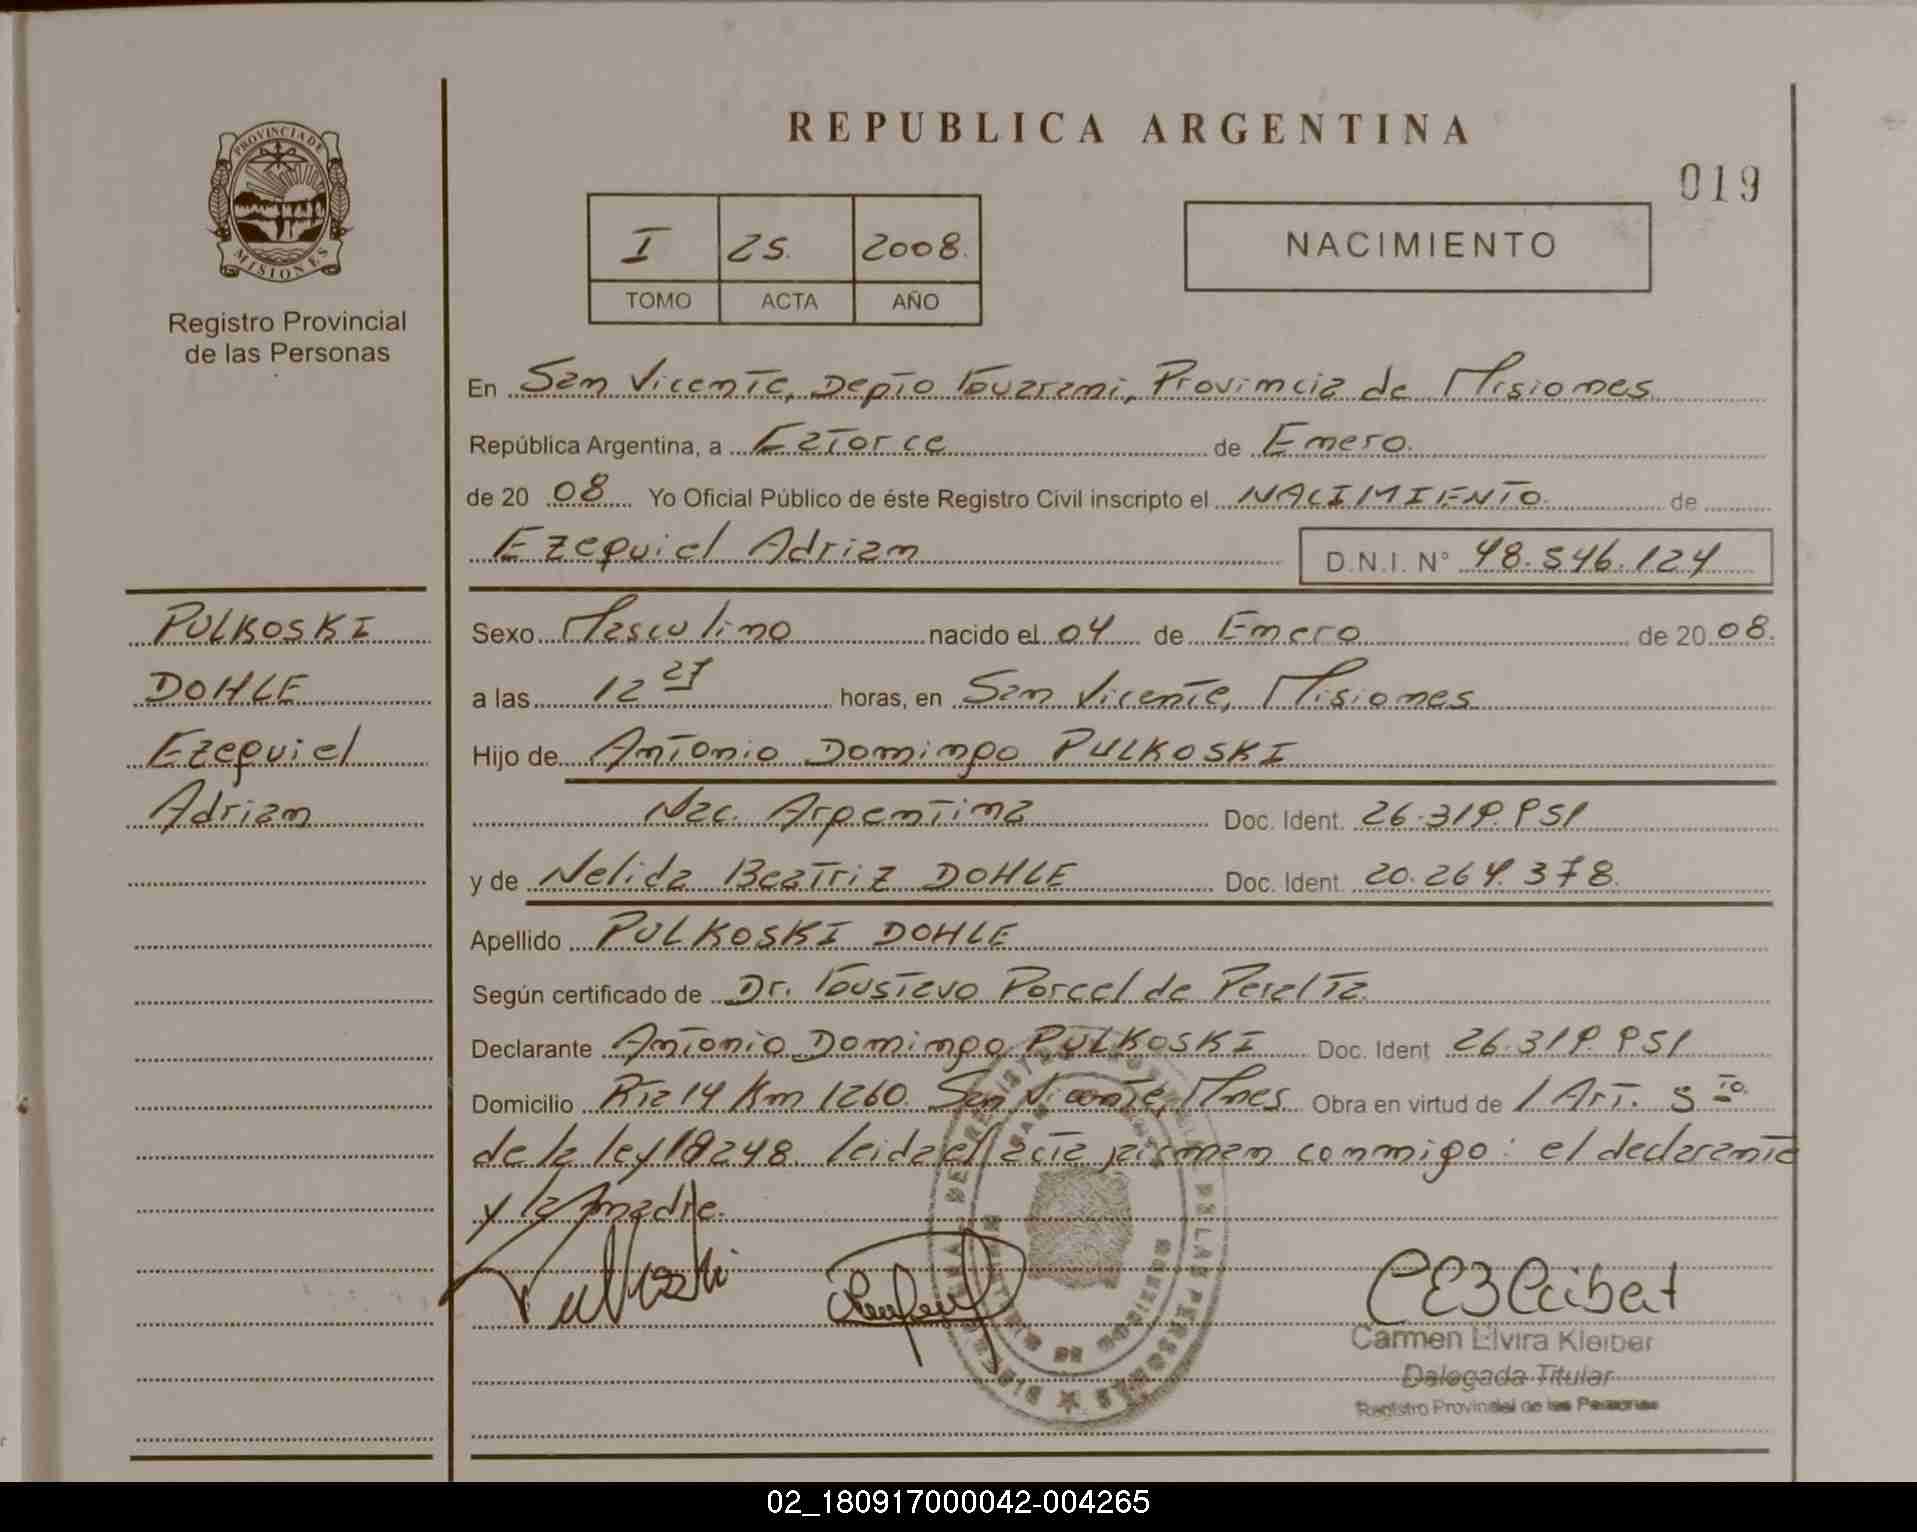 PROVINCIA DE
MISIONES
Registro Provincial
de las Personas
REPUBLICA ARGENTINA
019
I 25. 2008.
TOMO ACTA AÑO
NACIMIENTO
En San Vicente, Depto Guarani, Provincia de Misiones
República Argentina, a Catorce de Enero.
de 20 08 Yo Oficial Público de éste Registro Civil inscripto el NACIMIENTO de
Ezequiel Adrian D.N.I. N° 48.546.124
PULKOSKI
DOHLE
Ezequiel
Adrian
Sexo Masculino nacido el 04 de Enero de 20 08.
a las 12 27 horas, en San Vicente, Misiones
Hijo de Antonio Domingo PULKOSKI
Nac. Argentina Doc. Ident. 26.319.951
y de Nelida Beatriz DOHLE Doc. Ident. 20.264.378.
Apellido PULKOSKI DOHLE
Según certificado de Dr. Gustavo Porcel de Peralta
Declarante Antonio Domingo PULKOSKI Doc. Ident 26.319.951
Domicilio Rta 14 Km 1260. San Vicente, Mnes Obra en virtud de / Art. 5 to.
de la ley 18248. leida el acta firman conmigo: el declarante
y la madre.
Pulkoski
Carmen Elvira Kleiber
Delegada Titular
Registro Provincial de las Personas
02_180917000042-004265